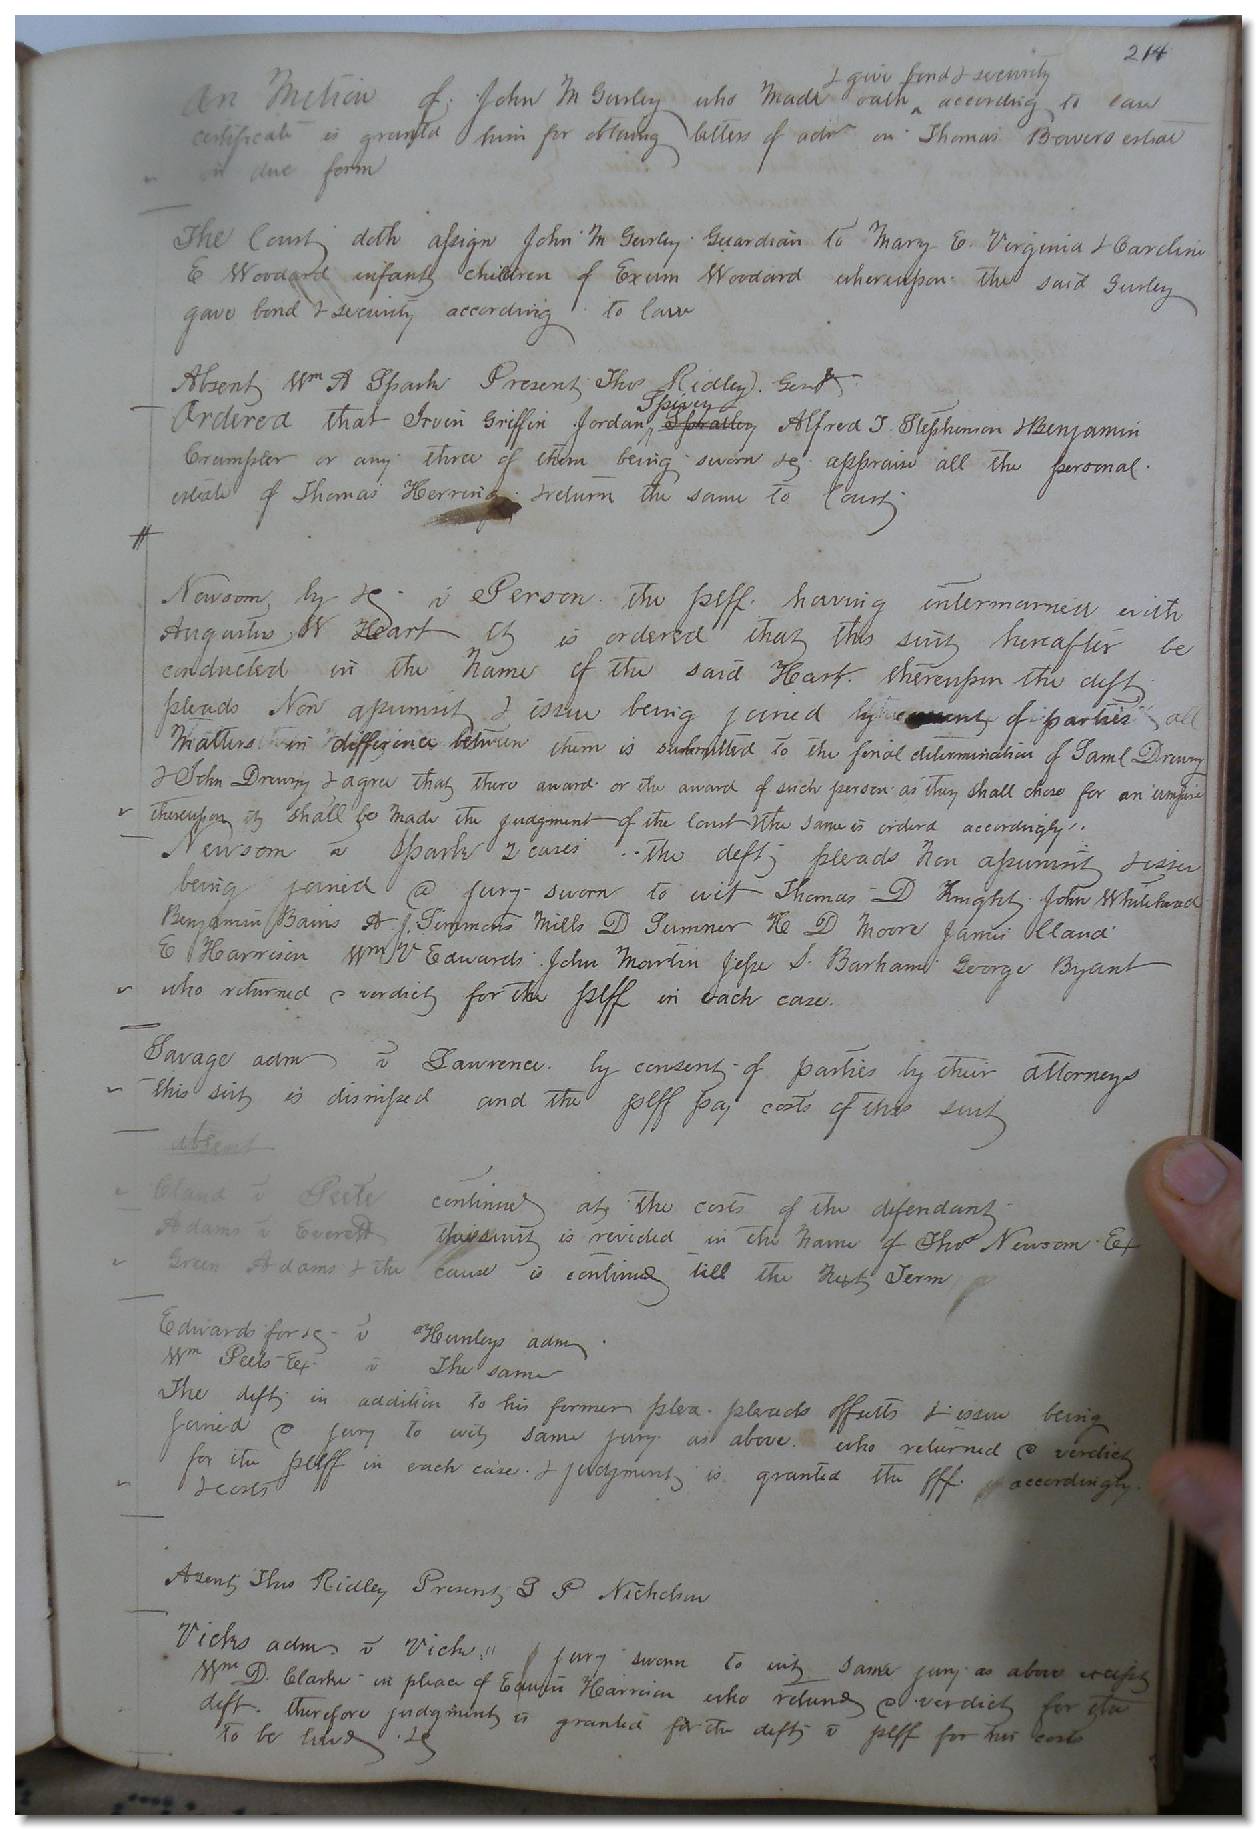 214
& give bond & security
On Motion of John M Gurley who made oath ^ according to law
certificate is grantd him for obtaing letters of adm on Thomas Bowers estate
in due form
The Court doth assign John M Gurley Guardian to Mary E. Virginia & Caroline
E Woodard infant children of Exum Woodard whereupon the said Gurley
gave bond & security according to law
Absent Wm A Spark Present Thos Ridley. Gent
Spivey
Ordered that Irvin Griffin Jordan Spratley Alfred J. Stephenson & Benjamin
Crumpler or any three of them being sworn &c appraise all the personal
estate of Thomas Herring & return the same to Court
Newsom by &c v Person the plff. having intermarried with
Augustus W Heart it is ordered that this suit hereafter be
conducted in the name of the said Heart. thereupon the deft
pleads Non assumsit & issue being joined by of parties all
Matters in difference between them is submitted to the final determination of Saml Drewry
& John Drewry & agree that there award or the award of such person as they shall chose for an umpire
thereupon it shall be made the judgment of the Court & the same is orderd accordingly.
Newsom v Spark 2 cases the deft pleads Non assumsit & issue
being joined a jury sworn to wit Thomas D Knight John Whitehead
Benjamin Bains A J. Simmons Mills D Sumner H D Moore James Claud
E Harrison Wm V Edwards John Martin Jesse S. Barham George Byant
who returned a verdict for the plff in each case.
Savage adm v Lawrence. by consent of parties by their attorneys
this suit is dismissed and the plff pay costs of this suit
absent
Claud v Peete continued at the costs of the defendant
Adams v Everett this suit is revided in the name of Thos Newsom Ex
Green Adams & the cause is continued till the next Term
Edwards for &c v Hunleys adm
Wm Peets Ex v The same
The deft in addition to his former plea. pleads offsetts & issue being
joined a jury to wit same jury as above. who returned a verdict
for the plff in each case. & judgment is granted the plff accordingly.
& costs
Absent Thos Ridley Present S P Nicholson
Vicks adm v Vick. jury sworn to wit same jury as above except
Wm D. Clarke in place of Edwin Harrison who retund a verdict for the
deft. therefore judgment is granted for the deft v plff for his costs
to be &c